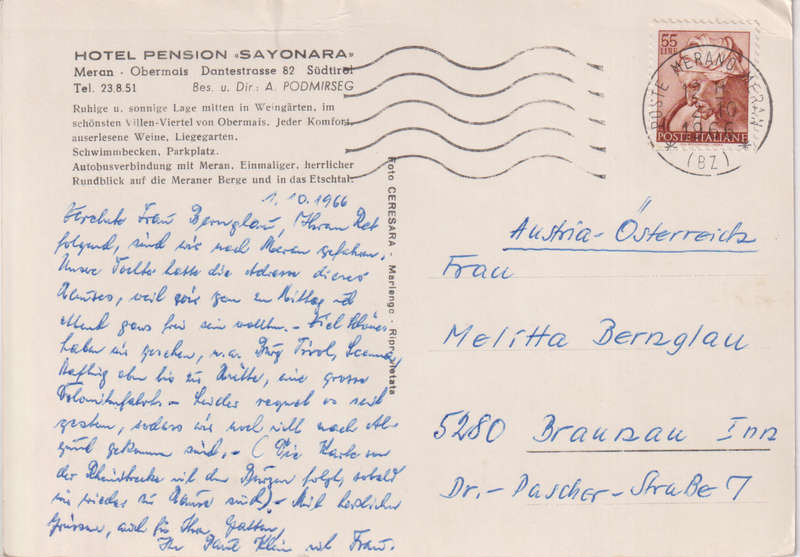 HOTEL PENSION «SAYONARA»
Meran · Obermais Dantestrasse 82 Südtirol
Tel. 23.8.51 Bes. u. Dir.: A. PODMIRSEG
Ruhige u. sonnige Lage mitten in Weingärten, im
schönsten Villen-Viertel von Obermais. Jeder Komfort,
auserlesene Weine, Liegegarten.
Schwimmbecken, Parkplatz.
Autobusverbindung mit Meran. Einmaliger, herrlicher
Rundblick auf die Meraner Berge und in das Etschtal.
1.10.1966
Verehrte Frau Bernglau, Ihrem Rat
folgend, sind wir nach Meran gefahren.
Unsre Tochter hatte die Adresse dieses
Hauses, weil wir gern zu Mittag und
Abend ganz frei sein wollten. – Viel Schönes
haben wir gesehen, u.a. Burg Tirol, Schenna,
Hafling oben bis zur Hütte, eine grosse
Dolomitenfahrt – Leider regnet es seit
gestern, sodass wir noch nicht nach
gekommen sind. – (Die Karte von
der Rheinstrecke mit den Burgen folgt, sobald
wir wieder zu Hause sind) – Mit herzlichen
Grüssen, auch für Ihren Gatten,
Ihr Paul Klein mit Frau.
Foto CERESARA - Marlengo - Ripr. vietata
55 LIRE
POSTE ITALIANE
POSTE MERANO MERAN
1966
(BZ)
Austria-Österreich
Frau
Melitta Bernglau
5280 Braunau Inn
Dr.-Pascher-Straße 7